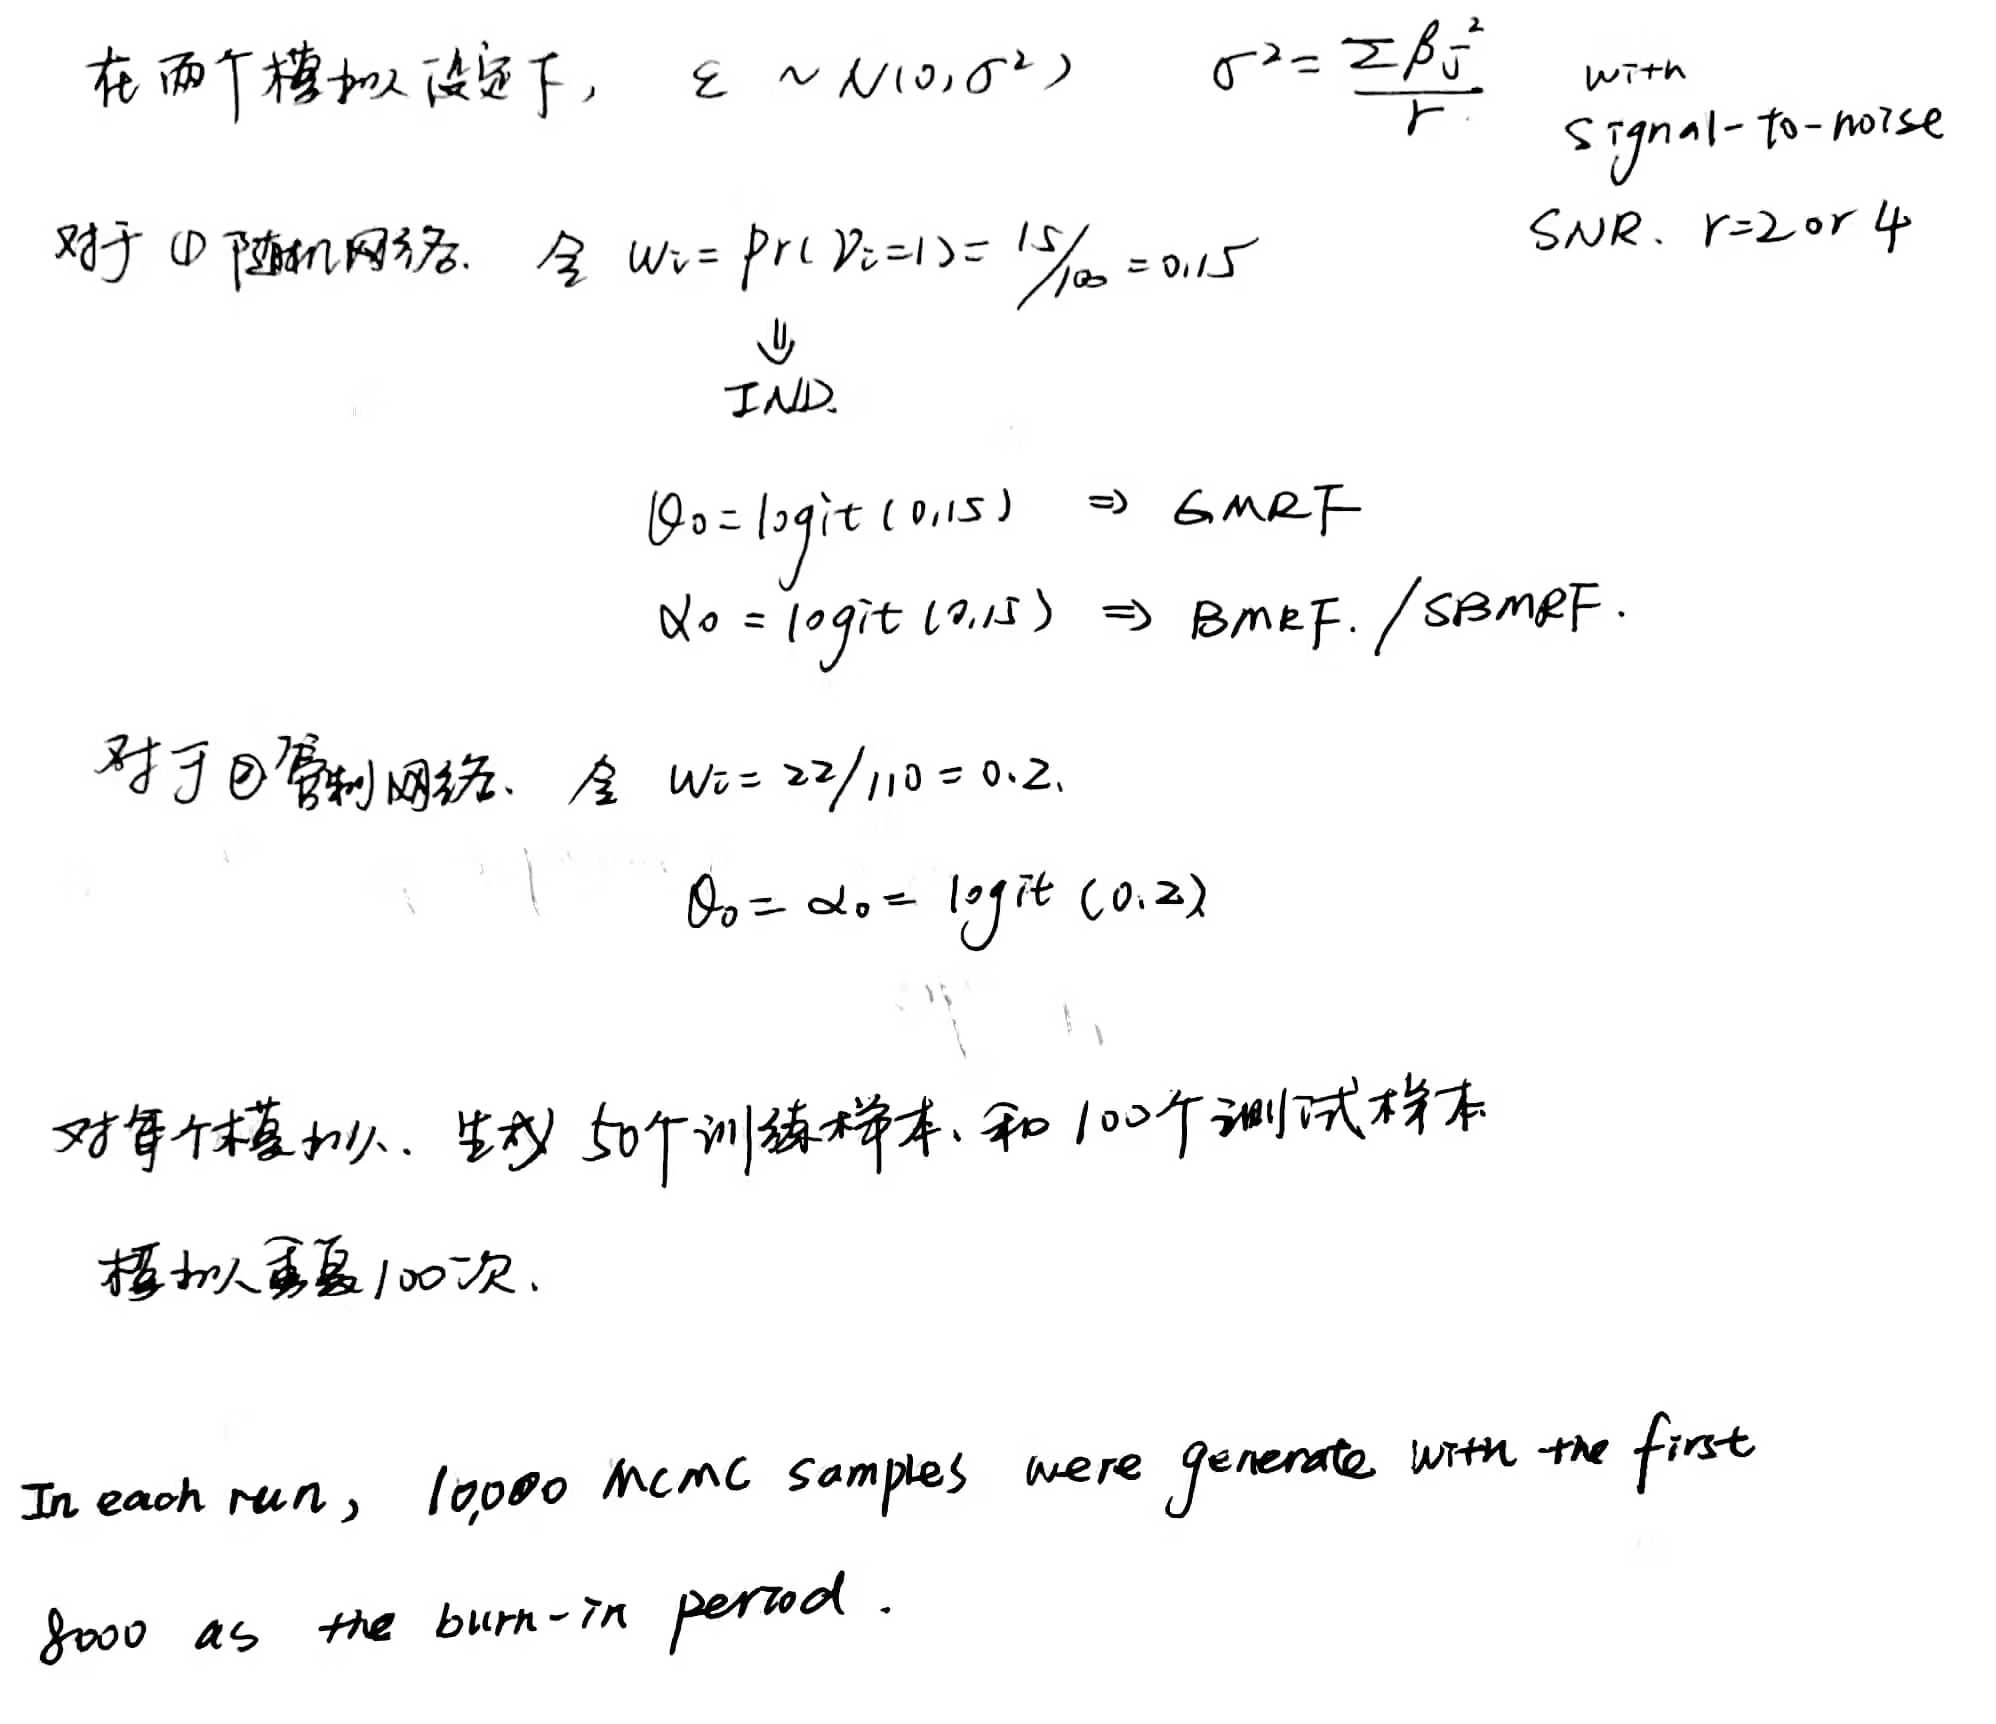 在两个模拟设定下, ε ~ N(0, σ²) σ² = Σβj² / r with
signal-to-noise
SNR. r=2 or 4
对于①随机网络. 令 wi = Pr(γi=1) = 15/100 = 0.15
⇓
IND.
θ0 = logit(0.15) ⇒ GMRF
α0 = logit(0.15) ⇒ BMRF. / SBMRF.
对于②管制网络. 令 wi = 22/110 = 0.2.
θ0 = α0 = logit(0.2)
对每个模拟. 生成 50个训练样本、和 100个测试样本
模拟重复100次.
In each run, 10,000 MCMC samples were generate with the first
8000 as the burn-in period.